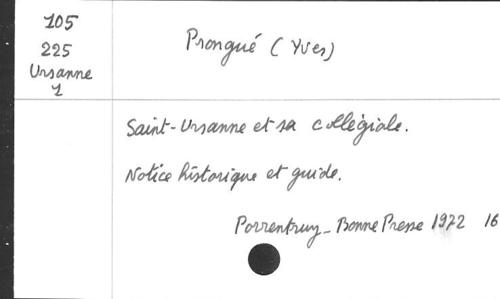 105
225
Ursanne
1
Prongué (Yves)
Saint-Ursanne et sa collégiale.
Notice historique et guide.
Porrentruy_ Bonne Presse 1972 16